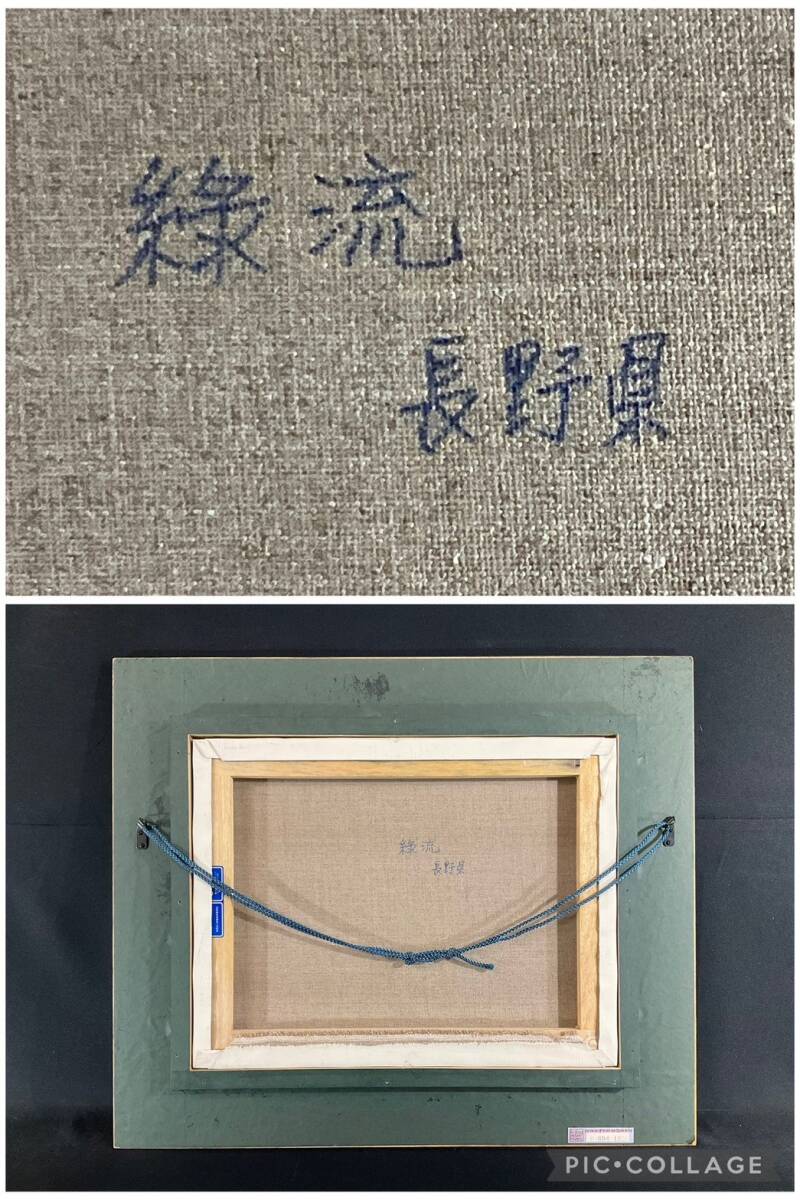 綠流
長野県
綠流
長野県
PIC•COLLAGE